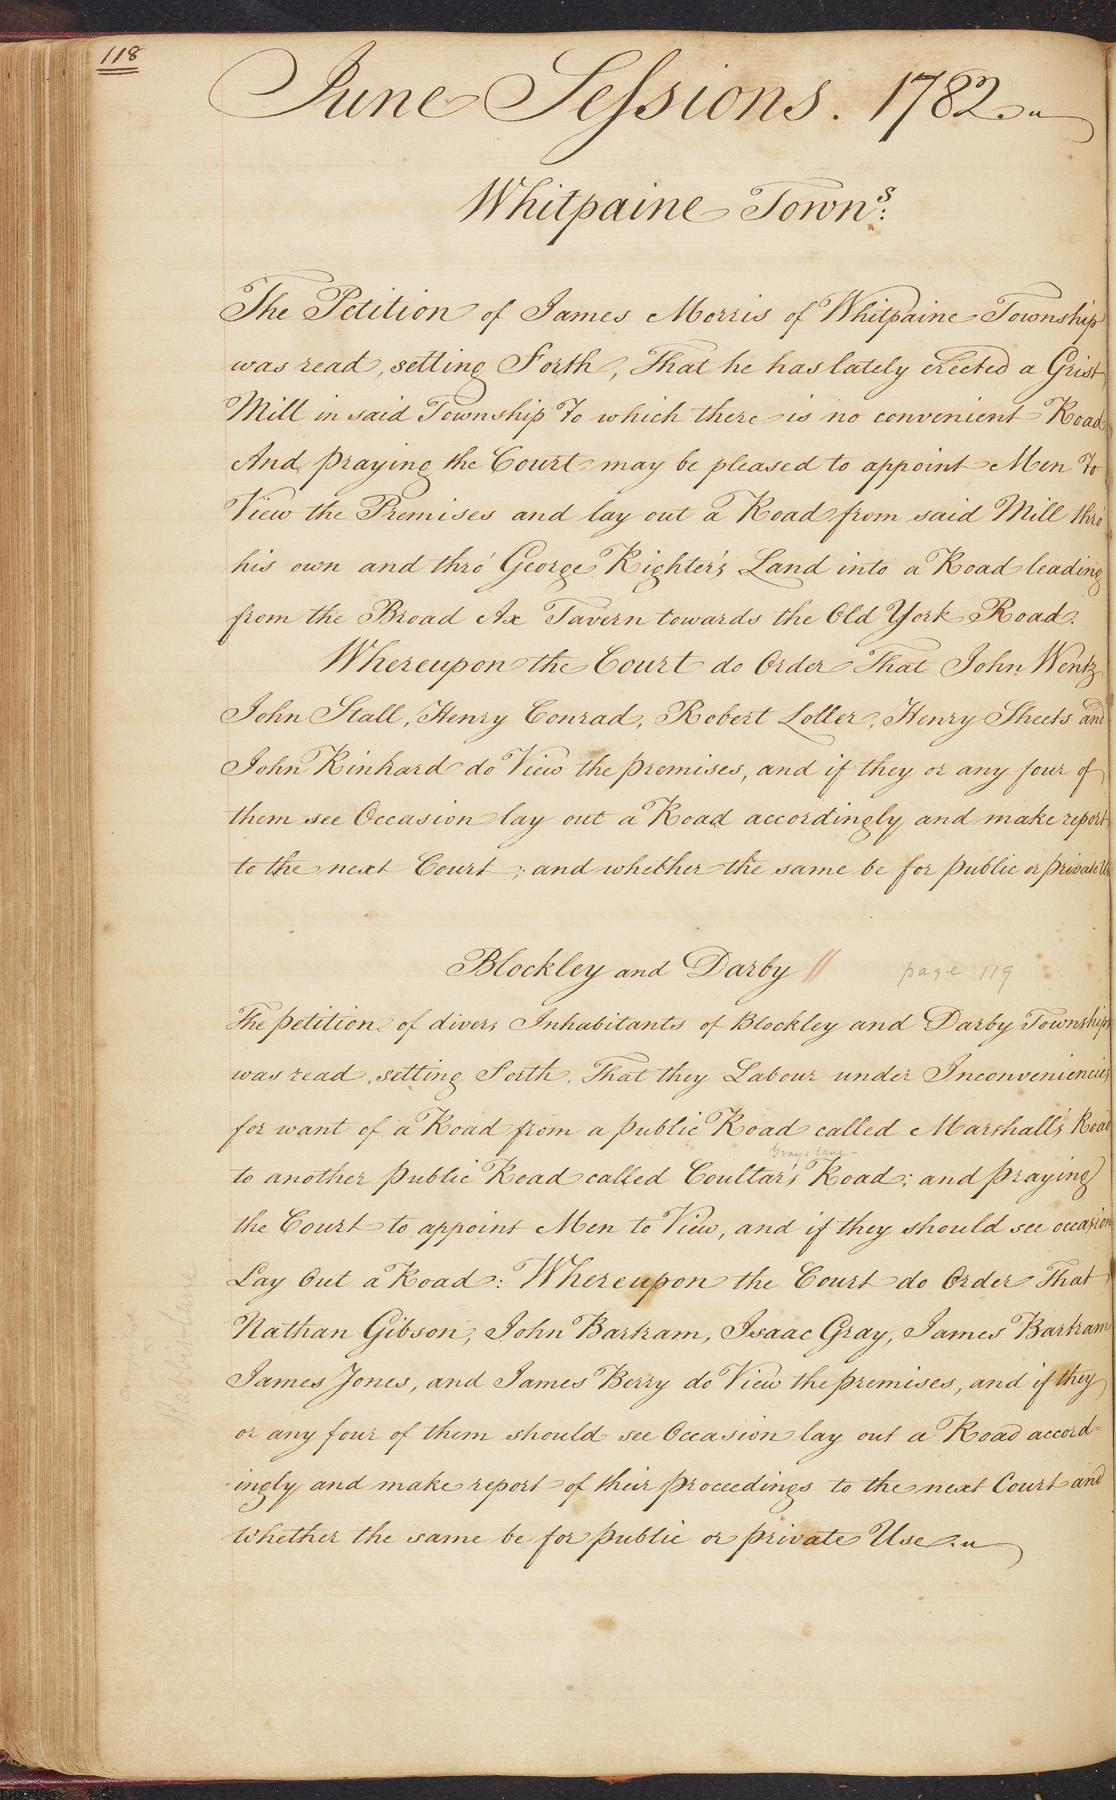 118
June Sessions. 1782.
Whitpaine Town.s
The Petition of James Morris of Whitpaine Township
was read, setting Forth, That he has lately erected a Grist
Mill in said Township To which there is no convenient Road
And praying the Court may be pleased to appoint Men To
View the Premises and lay out a Road from said Mill thro'
his own and thro' George Righter's Land into a Road leading
from the Broad Ax Tavern towards the Old York Road.
Whereupon the Court do Order That John Wentz
John Stall, Henry Conrad, Robert Loller, Henry Sheets and
John Rinhard do View the premises, and if they or any four of
them see Occasion lay out a Road accordingly and make report
to the next Court; and whether the same be for public or private Use
Blockley and Darby // page 119
The petition of divers Inhabitants of Blockley and Darby Townships
was read, setting Forth, That they Labour under Inconveniencies
for want of a Road from a public Road called Marshall's Road
Grays Lane
to another public Road called Coultar's Road; and praying
the Court to appoint Men to View, and if they should see occasion
Lay Out a Road: Whereupon the Court do Order That
Nathan Gibson, John Bartram, Isaac Gray, James Bartram
James Jones, and James Berry do View the premises, and if they
or any four of them should see Occasion lay out a Road accord=
ingly and make report of their proceedings to the next Court and
whether the same be for public or private Use.